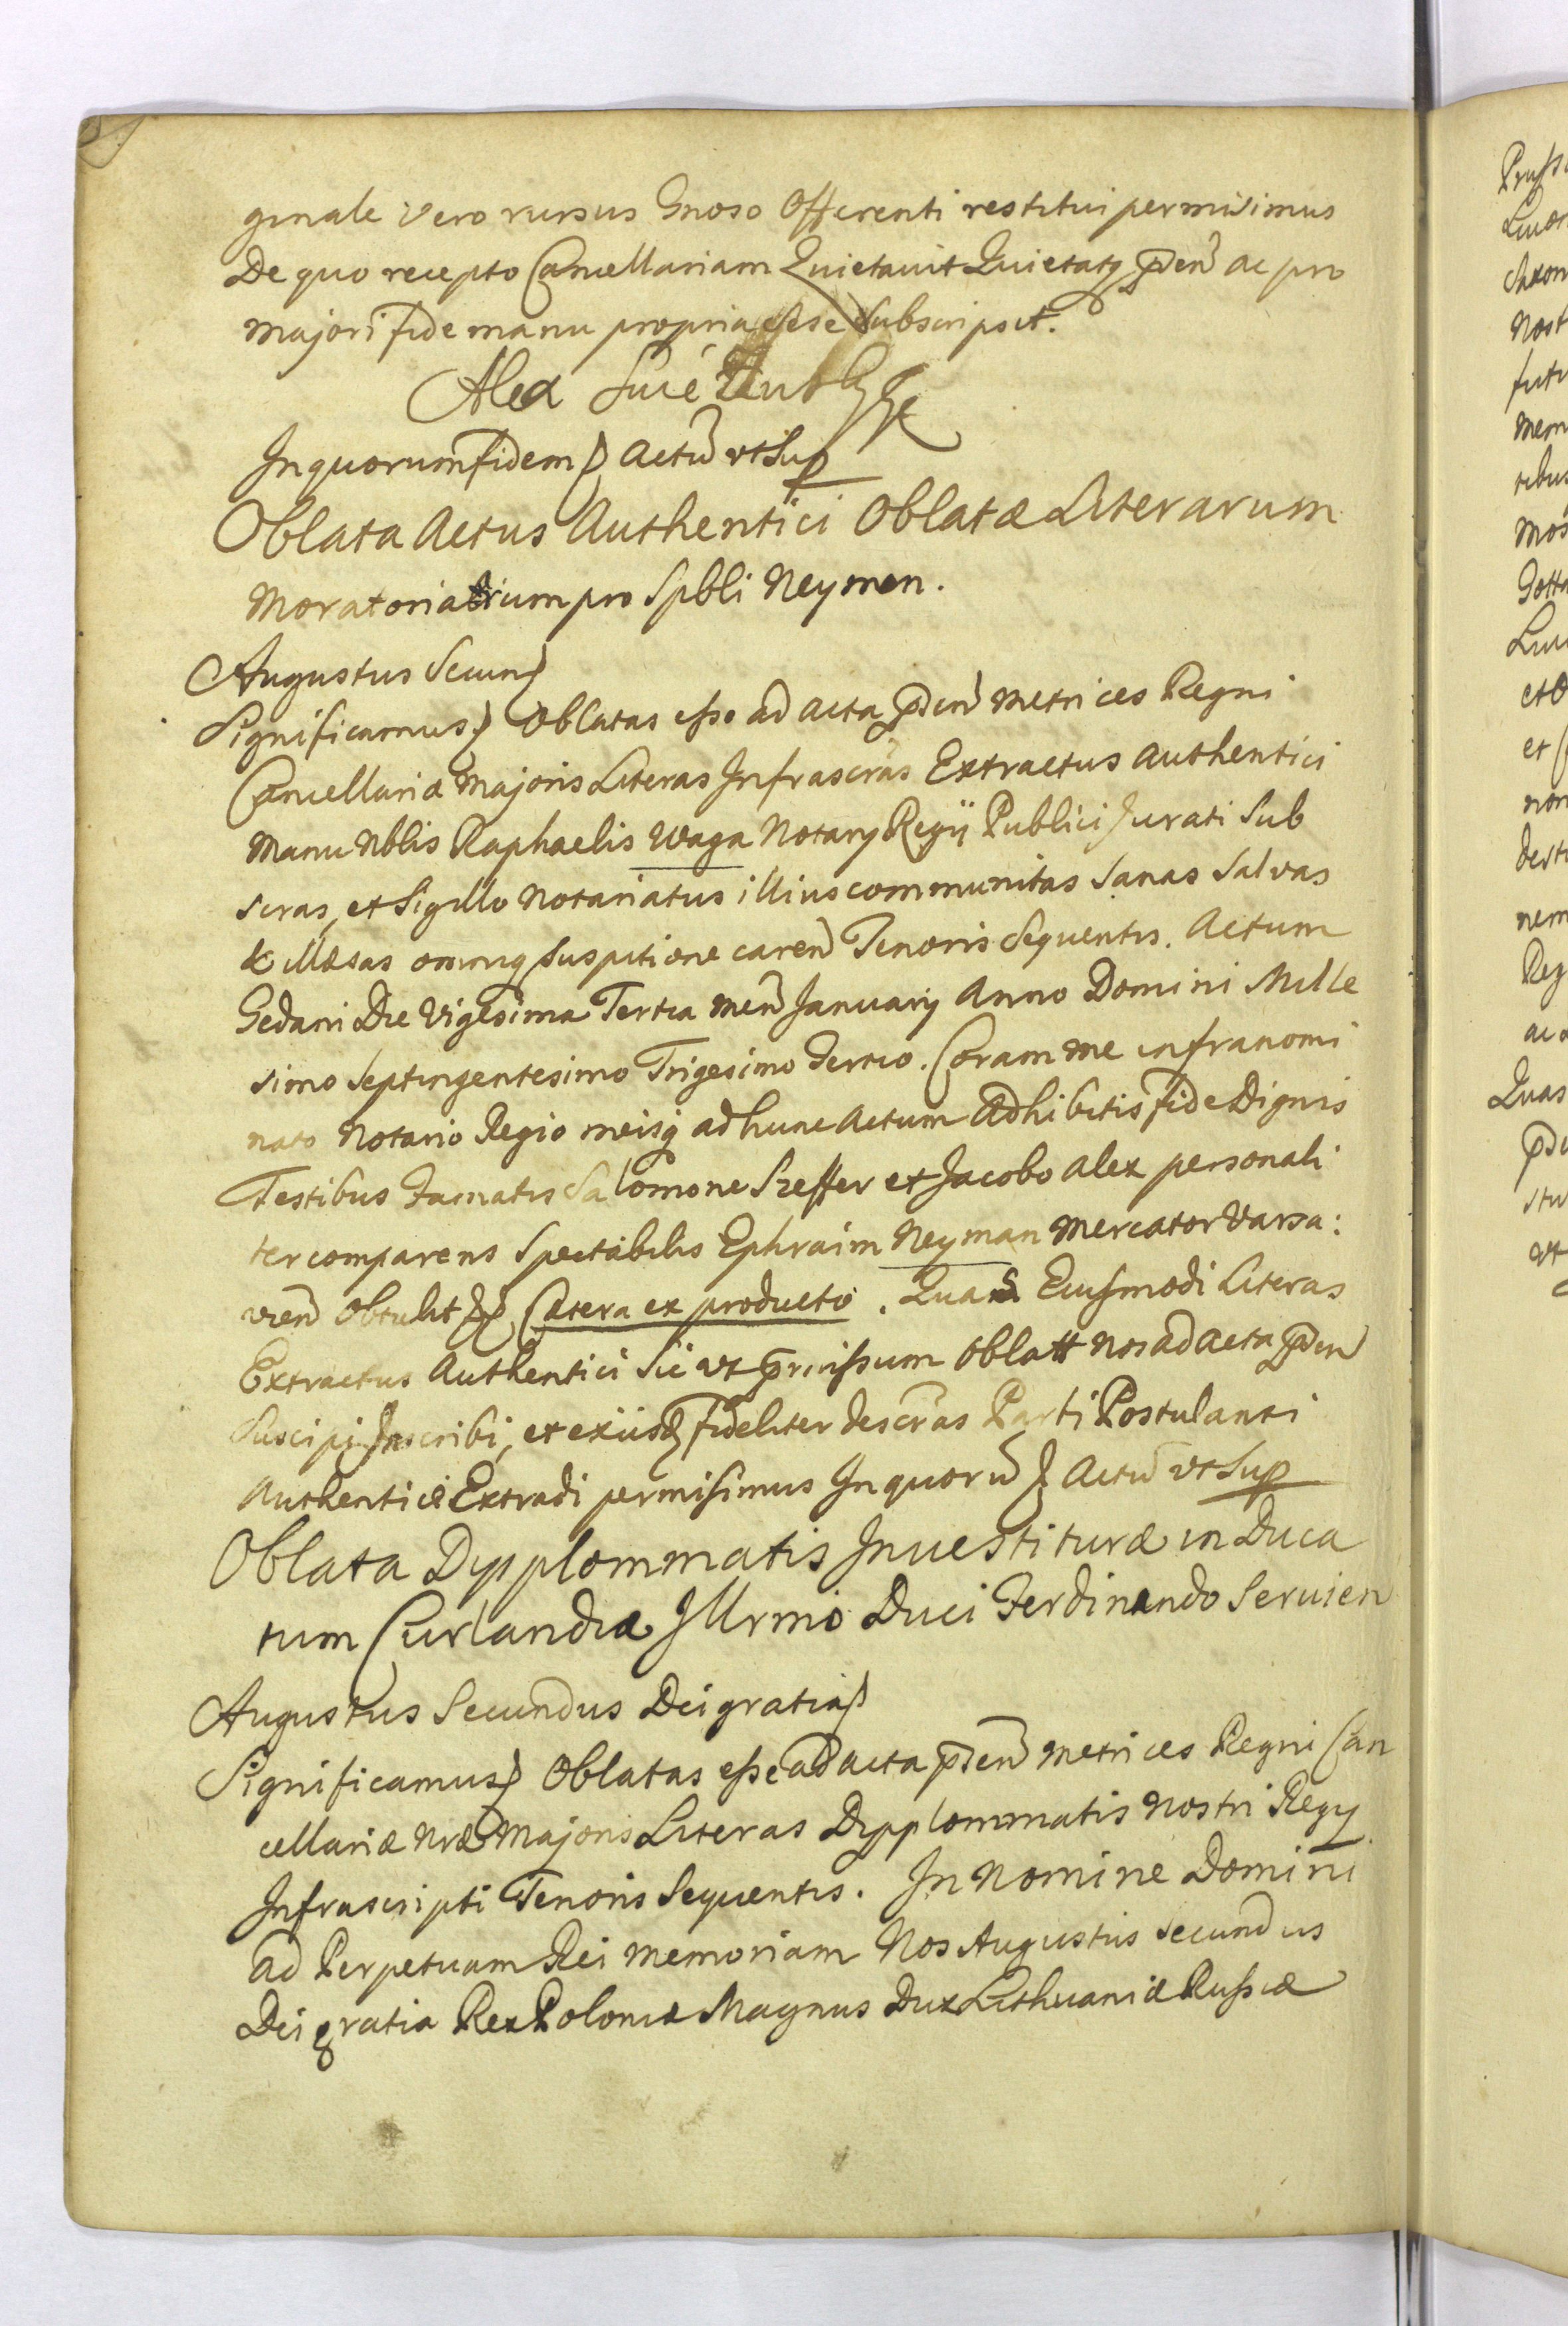 ginale vero rursus Gnoso Offerenti restitui permisimus
De quo recepto Cancellariam Quietavit Quietatq pden̄ ac pro
majori fide manu propria sese Subscripsit.
Alex
In quorum fidem Actū vt Sup
Oblata Actus Authentici Oblatæ Literarum
Moratoriarium pro Spbli Neyman.
Augustus Secund
Significamus Oblatas esse ad Acta pden̄ Metrices Regni
Cancellariæ Majoris Literas Infrascrās Extractus Authentici
Manu Nblis Raphaelis Waga Notarÿ Regÿ Publici Jurati Sub
scras, et Sigillo Notariatus illius communitas Sanas Salvas
& illæsas omniq suspitione caren̄ Tenoris Sequentis. Actum
Gedani Die Vigesima Tertia Men̄ Januarÿ Anno Domini Mille
simo Septingentesimo Trigesimo Tertio. Coram me infranomi
nato Notario Regio meisq ad hunc Actum Adhibitis fide Dignis
Testibus Famatis Salomone Szeffer et Jacobo Alex personali
ter comparens Spectabilis Ephraim Neyman Mercator Varsa:
vien̄ Obtulit Cætera ex producto. Quas Eiusmodi Literas
Extractus Authentici Sic vt præmissum Oblatt nos ad Acta pden̄
Suscipi Inscribi, et exiisd fideliter descrās Parti Postulanti
Authentice Extradi permisimus In quorū Actū vt Sup
Oblata Dypplommatis Inuestituræ in Duca
tum Curlandiæ Illrmo Duci Ferdinando Seruien
Augustus Secundus Dei gratia
Significamus Oblatas esse ad acta pden̄ Metrices Regni Can
cellariæ Nræ Majoris Literas Dypplommatis Nostri Regÿ
Infrascripti Tenoris Sequentis. In Nomine Domini
Ad Perpetuam Rei Memoriam Nos Augustus Secundus
Dei gratia Rex Poloniæ Magnus Dux Lithuaniæ Russiæ